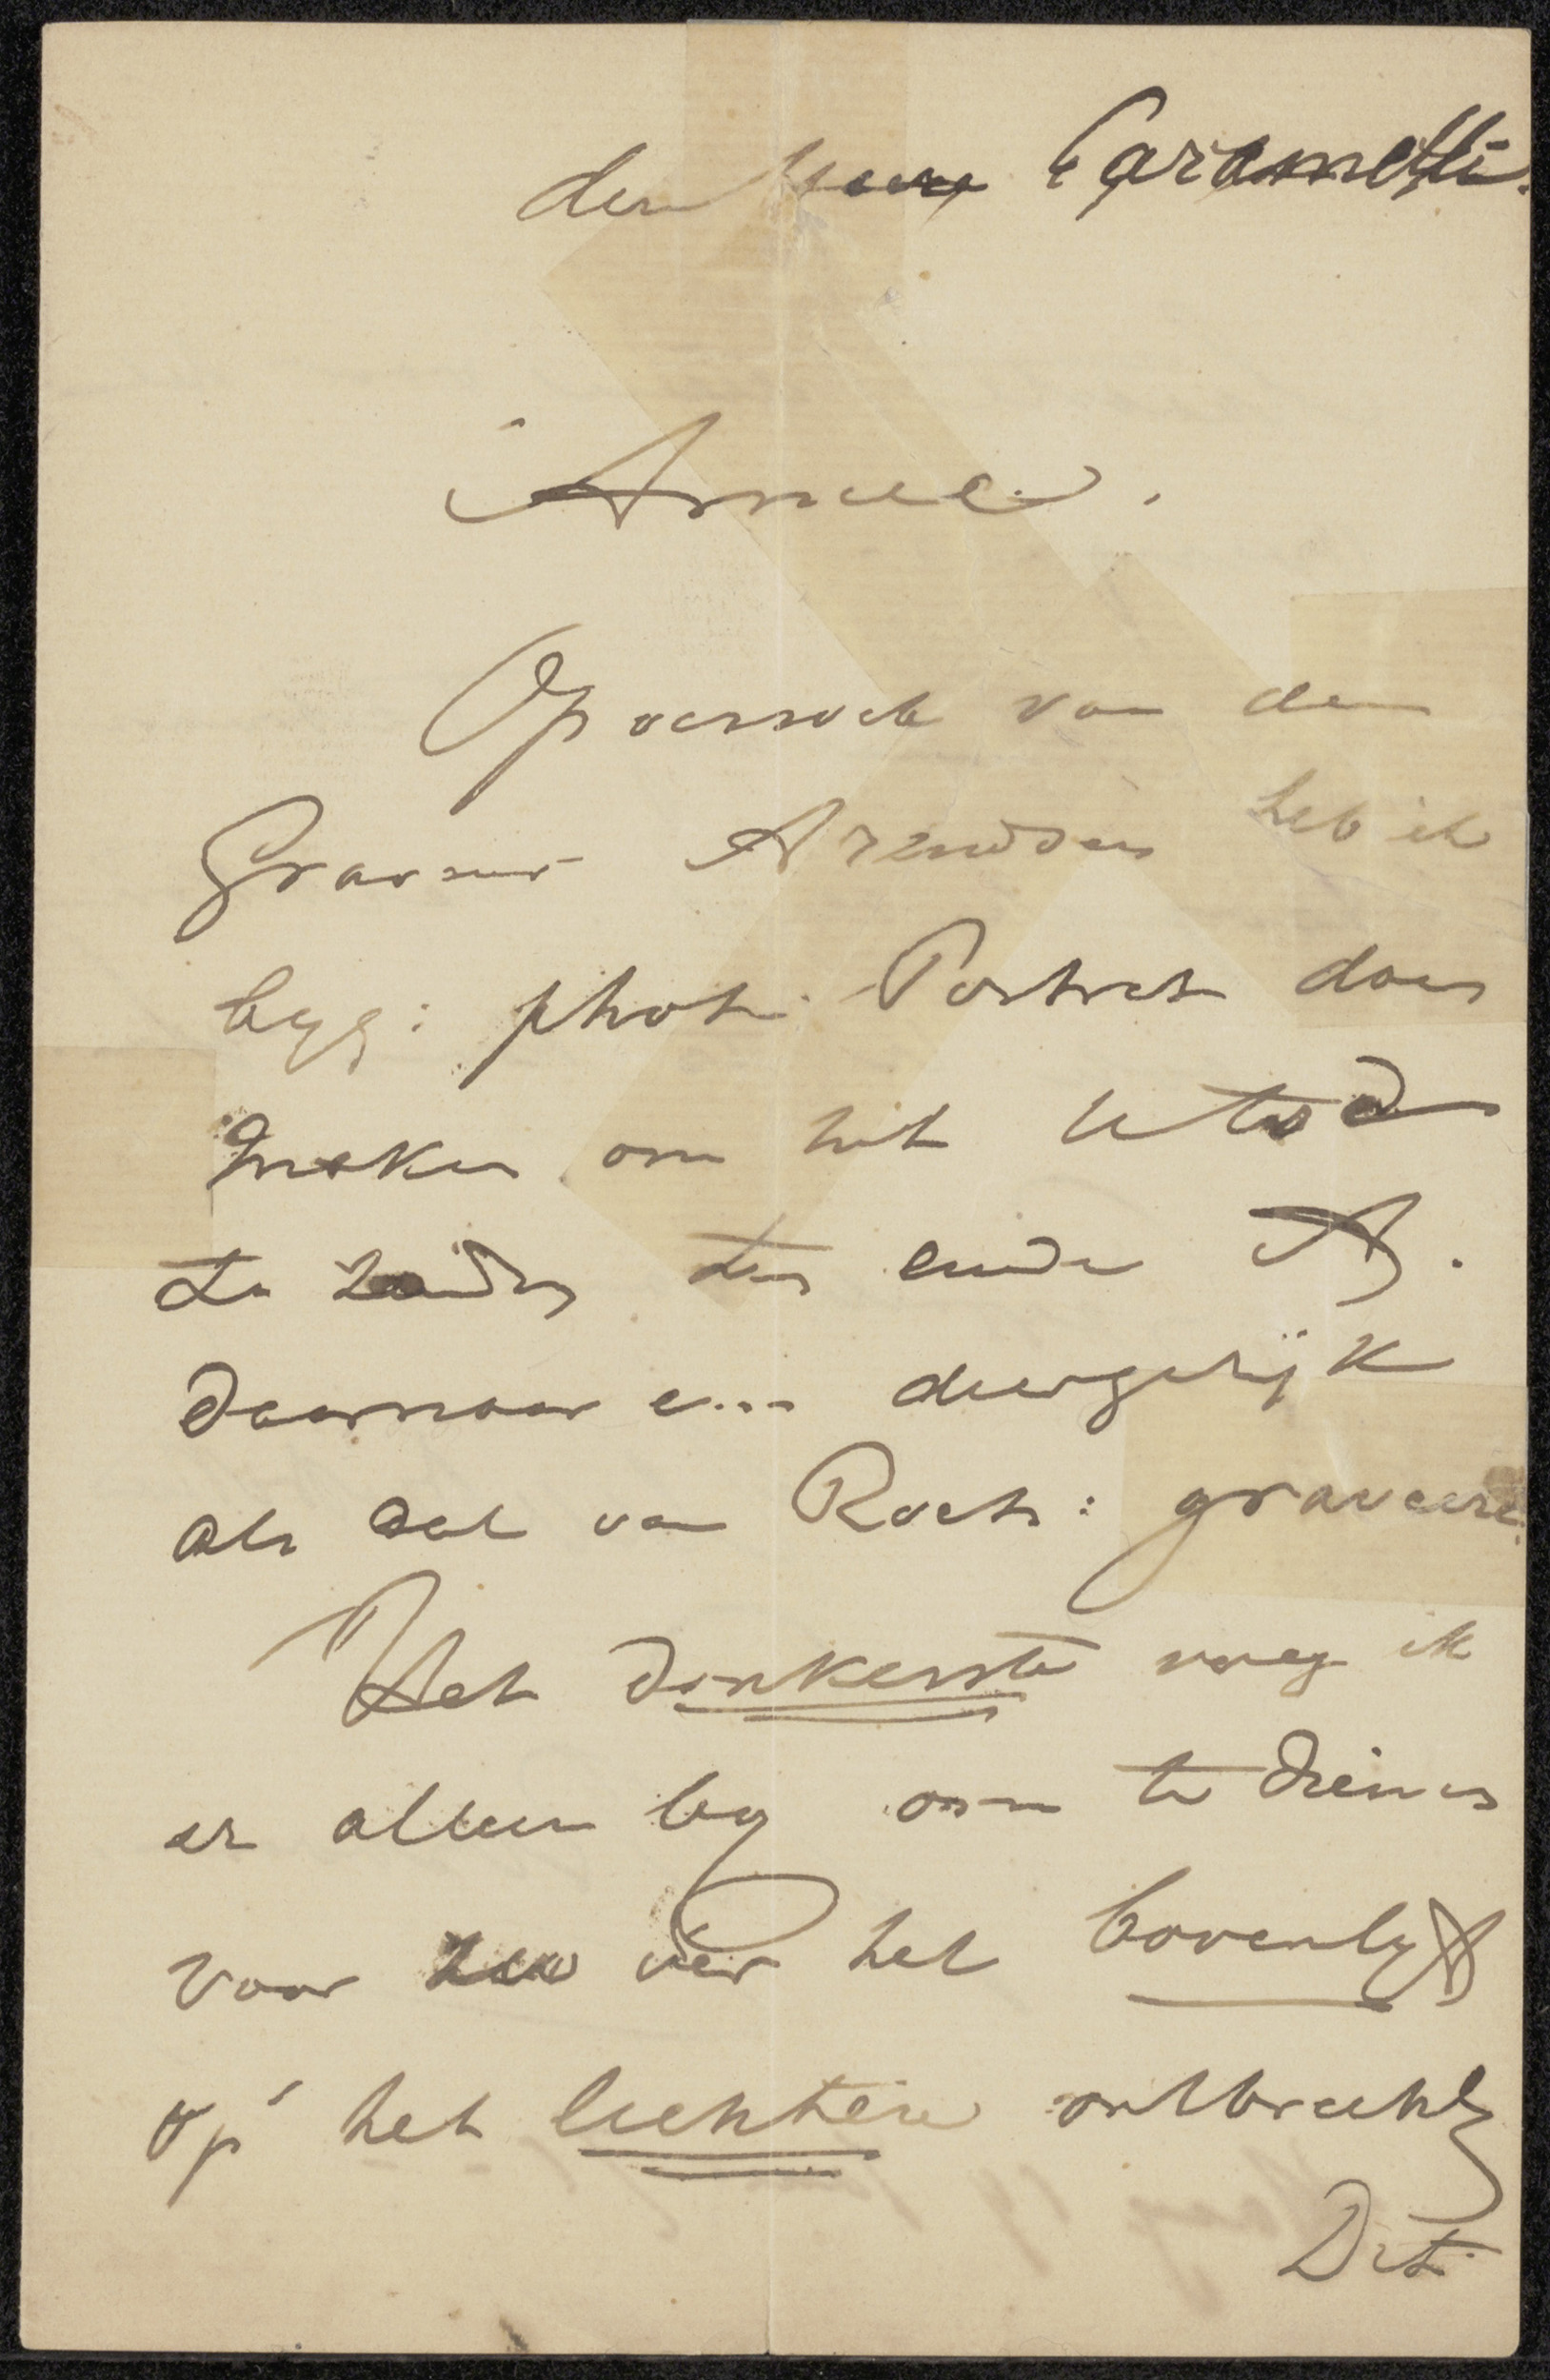 den Heere Caramelli.
Amice.
Op versoek van den
Graveur Arendzen heb ik
byg: phot. Portret doen
maken om het Utoe
te zenden ten einde A.
daarnaar een dergelijk
als dat van Roch: graveere.
Het donkerste voeg ik
er alleen by om te dienen
voor het
op het lichtere ontbreekt
Dit